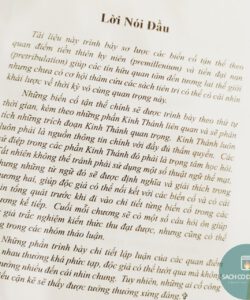 Lời Nói Đầu
Tài liệu này trình bày sơ lược các biến cố tận thế theo
quan điểm tiền thiên hy niên (premillenium) và tiền đại nạn
(pretribulation) giúp các tín hữu quan tâm đến tương lai thế giới
nhưng chưa có cơ hội thẩm cứu các sách tiên tri có thể có cái nhìn
khái lược về thời kỳ vô cùng quan trọng này.
Những biến cố tận thế chính sẽ được trình bày theo thứ tự
thời gian, kèm theo những phần Kinh Thánh liên quan và sẽ phân
tích những trích đoạn Kinh Thánh quan trọng. Kinh Thánh luôn
luôn phải là nguồn thông tin chính với đầy đủ thẩm quyền. Các
vẻ đẹp trong các phần Kinh Thánh đó phải là trọng tâm học hỏi.
nhiên không thể tránh phải sử dụng một số thuật ngữ thế mạt,
nhưng những từ ngữ đó sẽ được định nghĩa và giải thích trong
chương hai, giúp độc giả có thể nối kết với các biến cố và có cái
nhìn tổng quát trước khi đi vào chi tiết từng biến cố trong các
chương kế tiếp. Cuối mỗi chương sẽ có một số câu hỏi ôn giúp
giả trắc nghiệm kiến thức thu đạt được, nhưng cũng có thể
trong các nhóm thảo luận.
Những phần trình bày chi tiết lập luận của các quan điểm
nhau thường khá phức tạp, độc giả có thể lướt qua mà không
hưởng nhiều đến cái nhìn chung. Tuy nhiên, những ai cố công
hiểu sẽ thấy được tưởng thưởng xứng đáng.